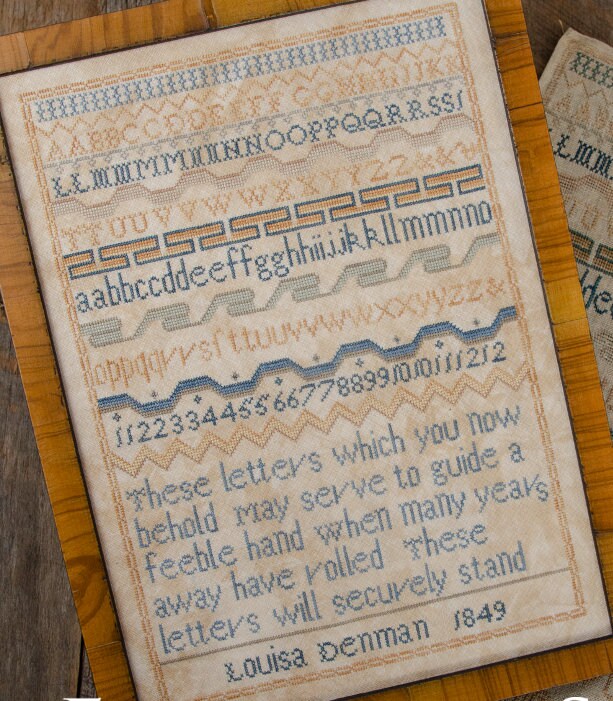 AABBCCDDEEFFGGHHIIJJKK
LLMMMMNNNNOOPPQQRRSSſ
TTUUVVWWXXYYZZ&&
aabbccddeeffgghhiijjkkllmmnno
oppqqrrsſttuuvvwwxxyyzz&
112233445566778899101011111212
These letters which you now
behold May serve to guide a
feeble hand When many years
away have rolled These
letters will securely stand
Louisa Denman 1849